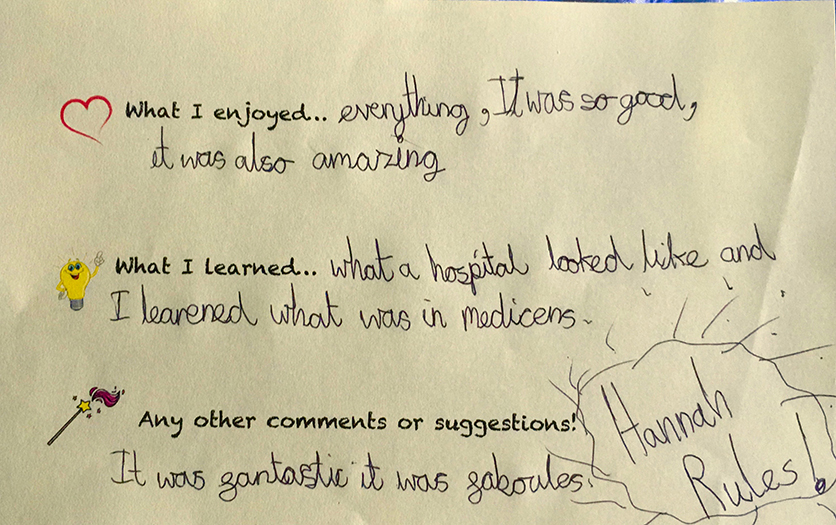 What I enjoyed... everything, It was so good,
it was also amazing
What I learned... what a hospital looked like and
I learened what was in medicens.
Any other comments or suggestions!
It was fantastic it was faboules.
Hannah
Rules!